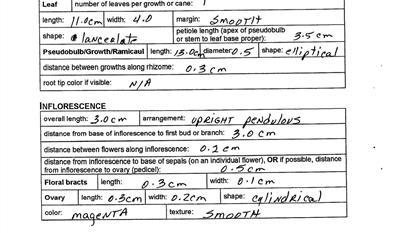 Leaf number of leaves per growth or cane: 1
length: 11.0cm width: 4.0 margin: SMOOTH
shape: lanceolate petiole length (apex of pseudobulb or stem to leaf base proper): 3.5cm
Pseudobulb/Growth/Ramicaul length: 13.0cm diameter: 0.5 shape: elliptical
distance between growths along rhizome: 0.3cm
root tip color if visible: N/A
INFLORESCENCE
overall length: 3.0cm arrangement: UPRIGHT pendulous
distance from base of inflorescence to first bud or branch: 3.0cm
distance between flowers along inflorescence: 0.2cm
distance from inflorescence to base of sepals (on an individual flower), OR if possible, distance
from inflorescence to ovary (pedicel): 0.5cm
Floral bracts length: 0.3cm width: 0.1cm
Ovary length: 0.3cm width: 0.2cm shape: cylindrical
color: magenta texture: SMOOTH